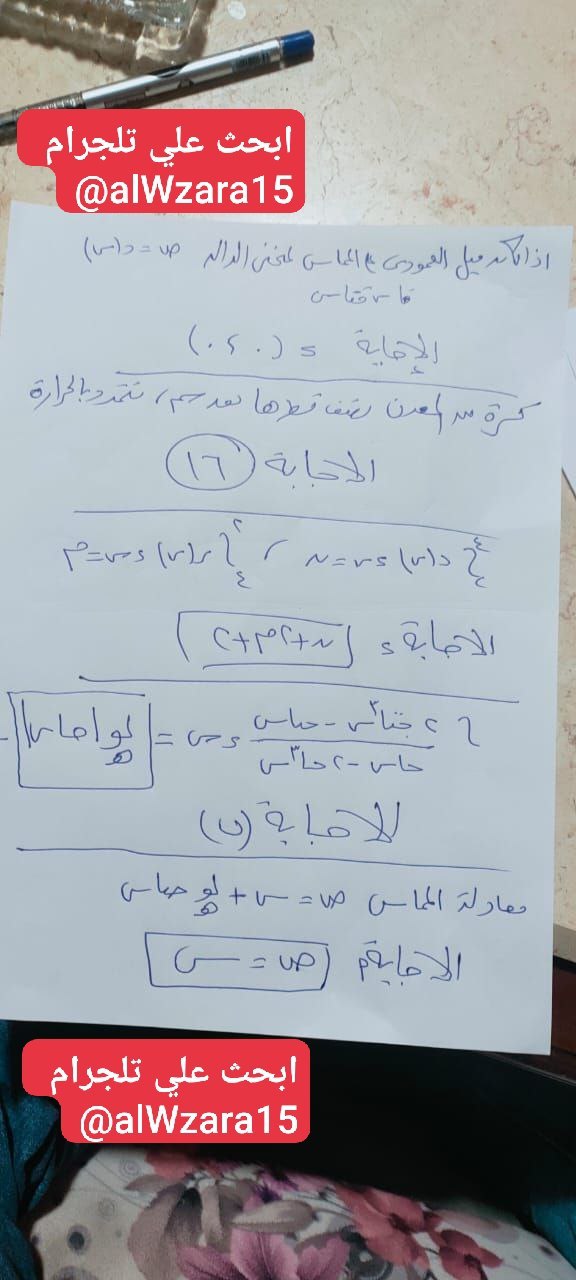 ابحث علي تلجرام
@alWzara15
اذا كان ميل العمودى على المماس لمنحنى الداله ص = د(س)
قاس قتاس
الإجابة د (٢، ٠)
كرة من المعدن نصف قطرها بعد تتمدد بالحرارة
الاجابة ١٦
د(س) دس = ن ، ر(س) دس = م
الاجابة د ن + ٢م + ٢
∫ ٢ جتا³س - جتاس / جاس - ٢ جا³س دس = لو هـ |جاس|
الاجابة (ب)
معادلة المماس ص = س + لو هـ جتاس
الاجابة م ص = س
ابحث علي تلجرام
@alWzara15